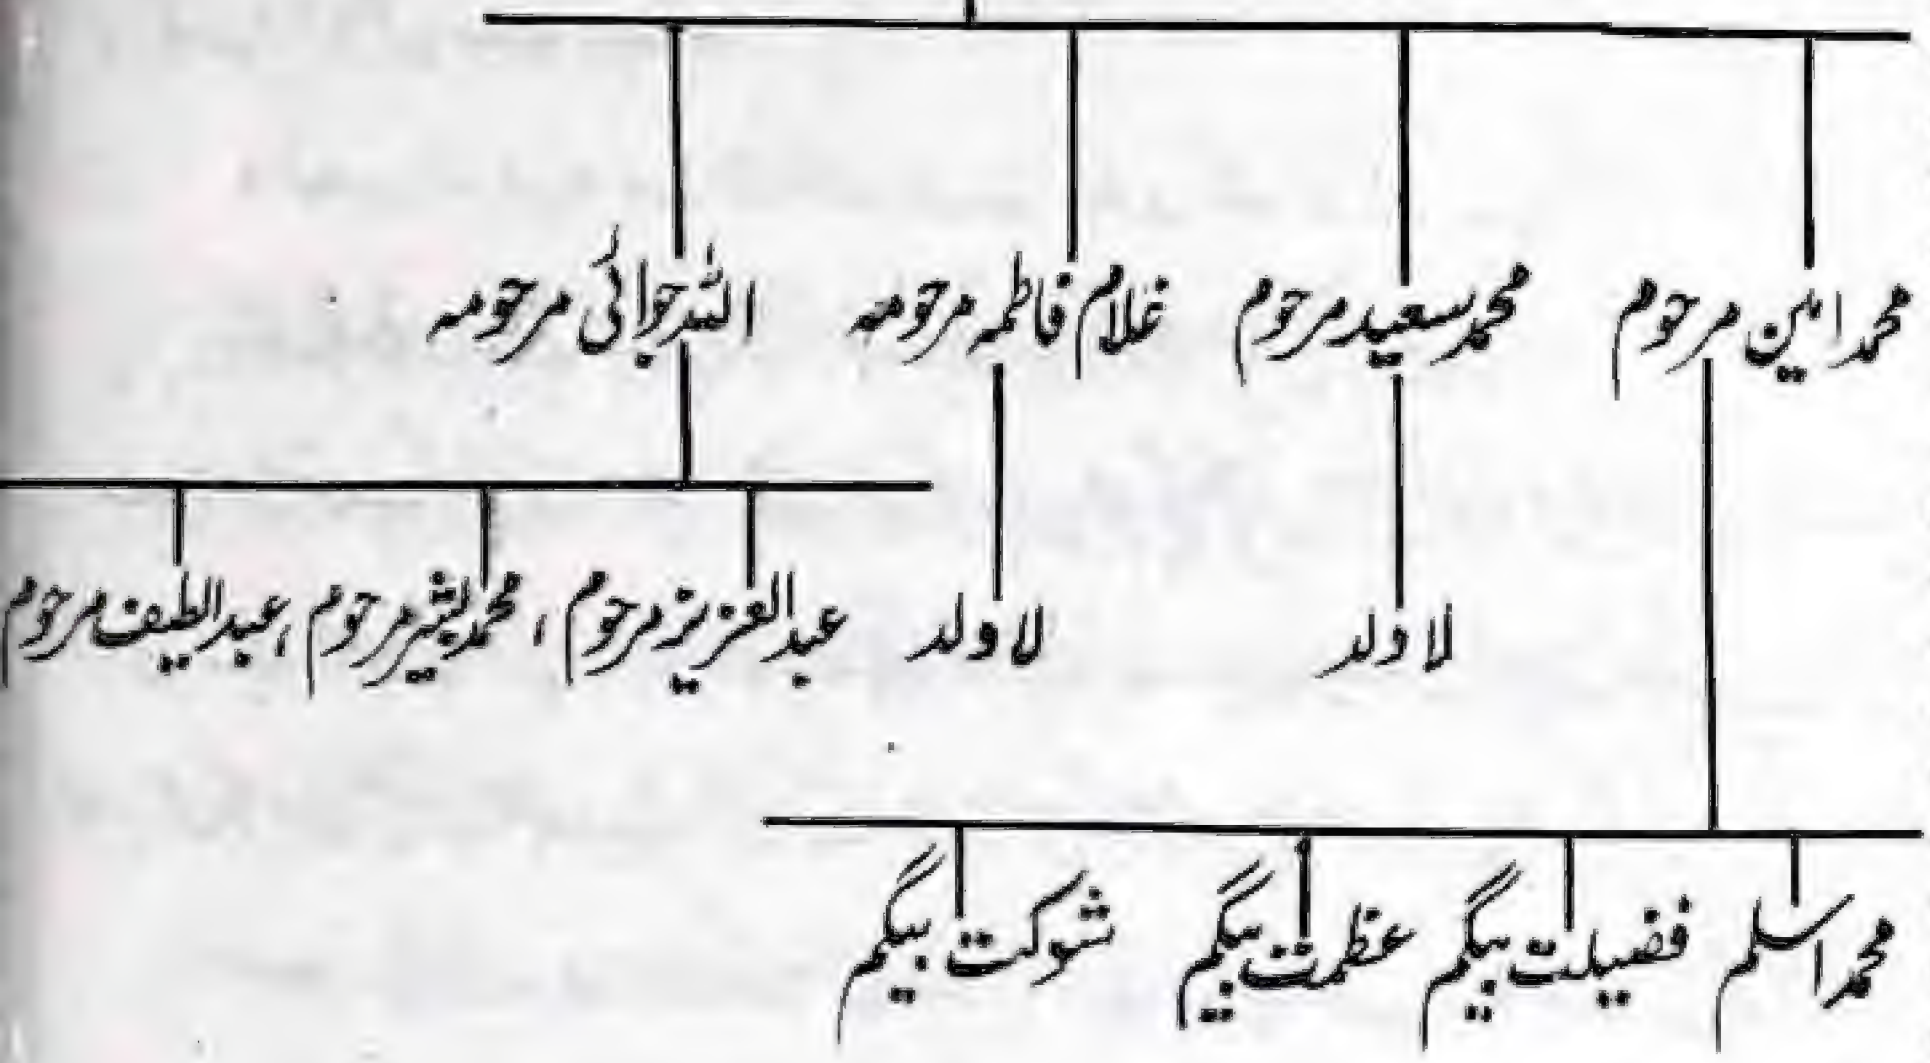 محمد امین مرحوم محمد سعید مرحوم غلام فاطمہ مرحومہ اللہ جوائی مرحومہ
لا ولد لا ولد عبدالعزیز مرحوم ، محمد بشیر مرحوم ، عبدالطیف مرحوم
محمد اسلم فضیلت بیگم عظمت بیگم شوکت بیگم